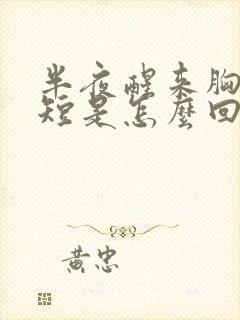 半夜醒来胸
短是怎麼回
黄忠